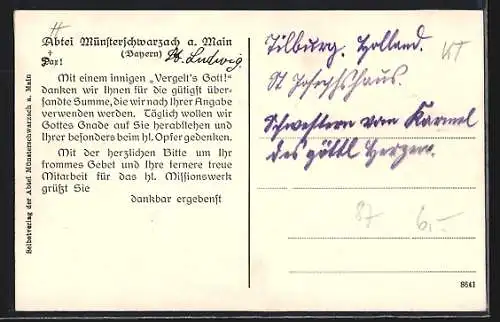 Abtei Münsterschwarzach a. Main
(Bayern) St. Ludwig.
† Pax!
Mit einem innigen „Vergelt's Gott!“
danken wir Ihnen für die gütigst über-
sandte Summe, die wir nach Ihrer Angabe
verwenden werden. Täglich wollen wir
Gottes Gnade auf Sie herabflehen und
Ihrer besonders beim hl. Opfer gedenken.
Mit der herzlichen Bitte um Ihr
frommes Gebet und Ihre fernere treue
Mitarbeit für das hl. Missionswerk
grüßt Sie
dankbar ergebenst
Selbstverlag der Abtei Münsterschwarzach a. Main
Tilburg. Holland.
St Josephshaus.
Schwestern vom Karmel
des göttl Herzens.
87
6,-
8641